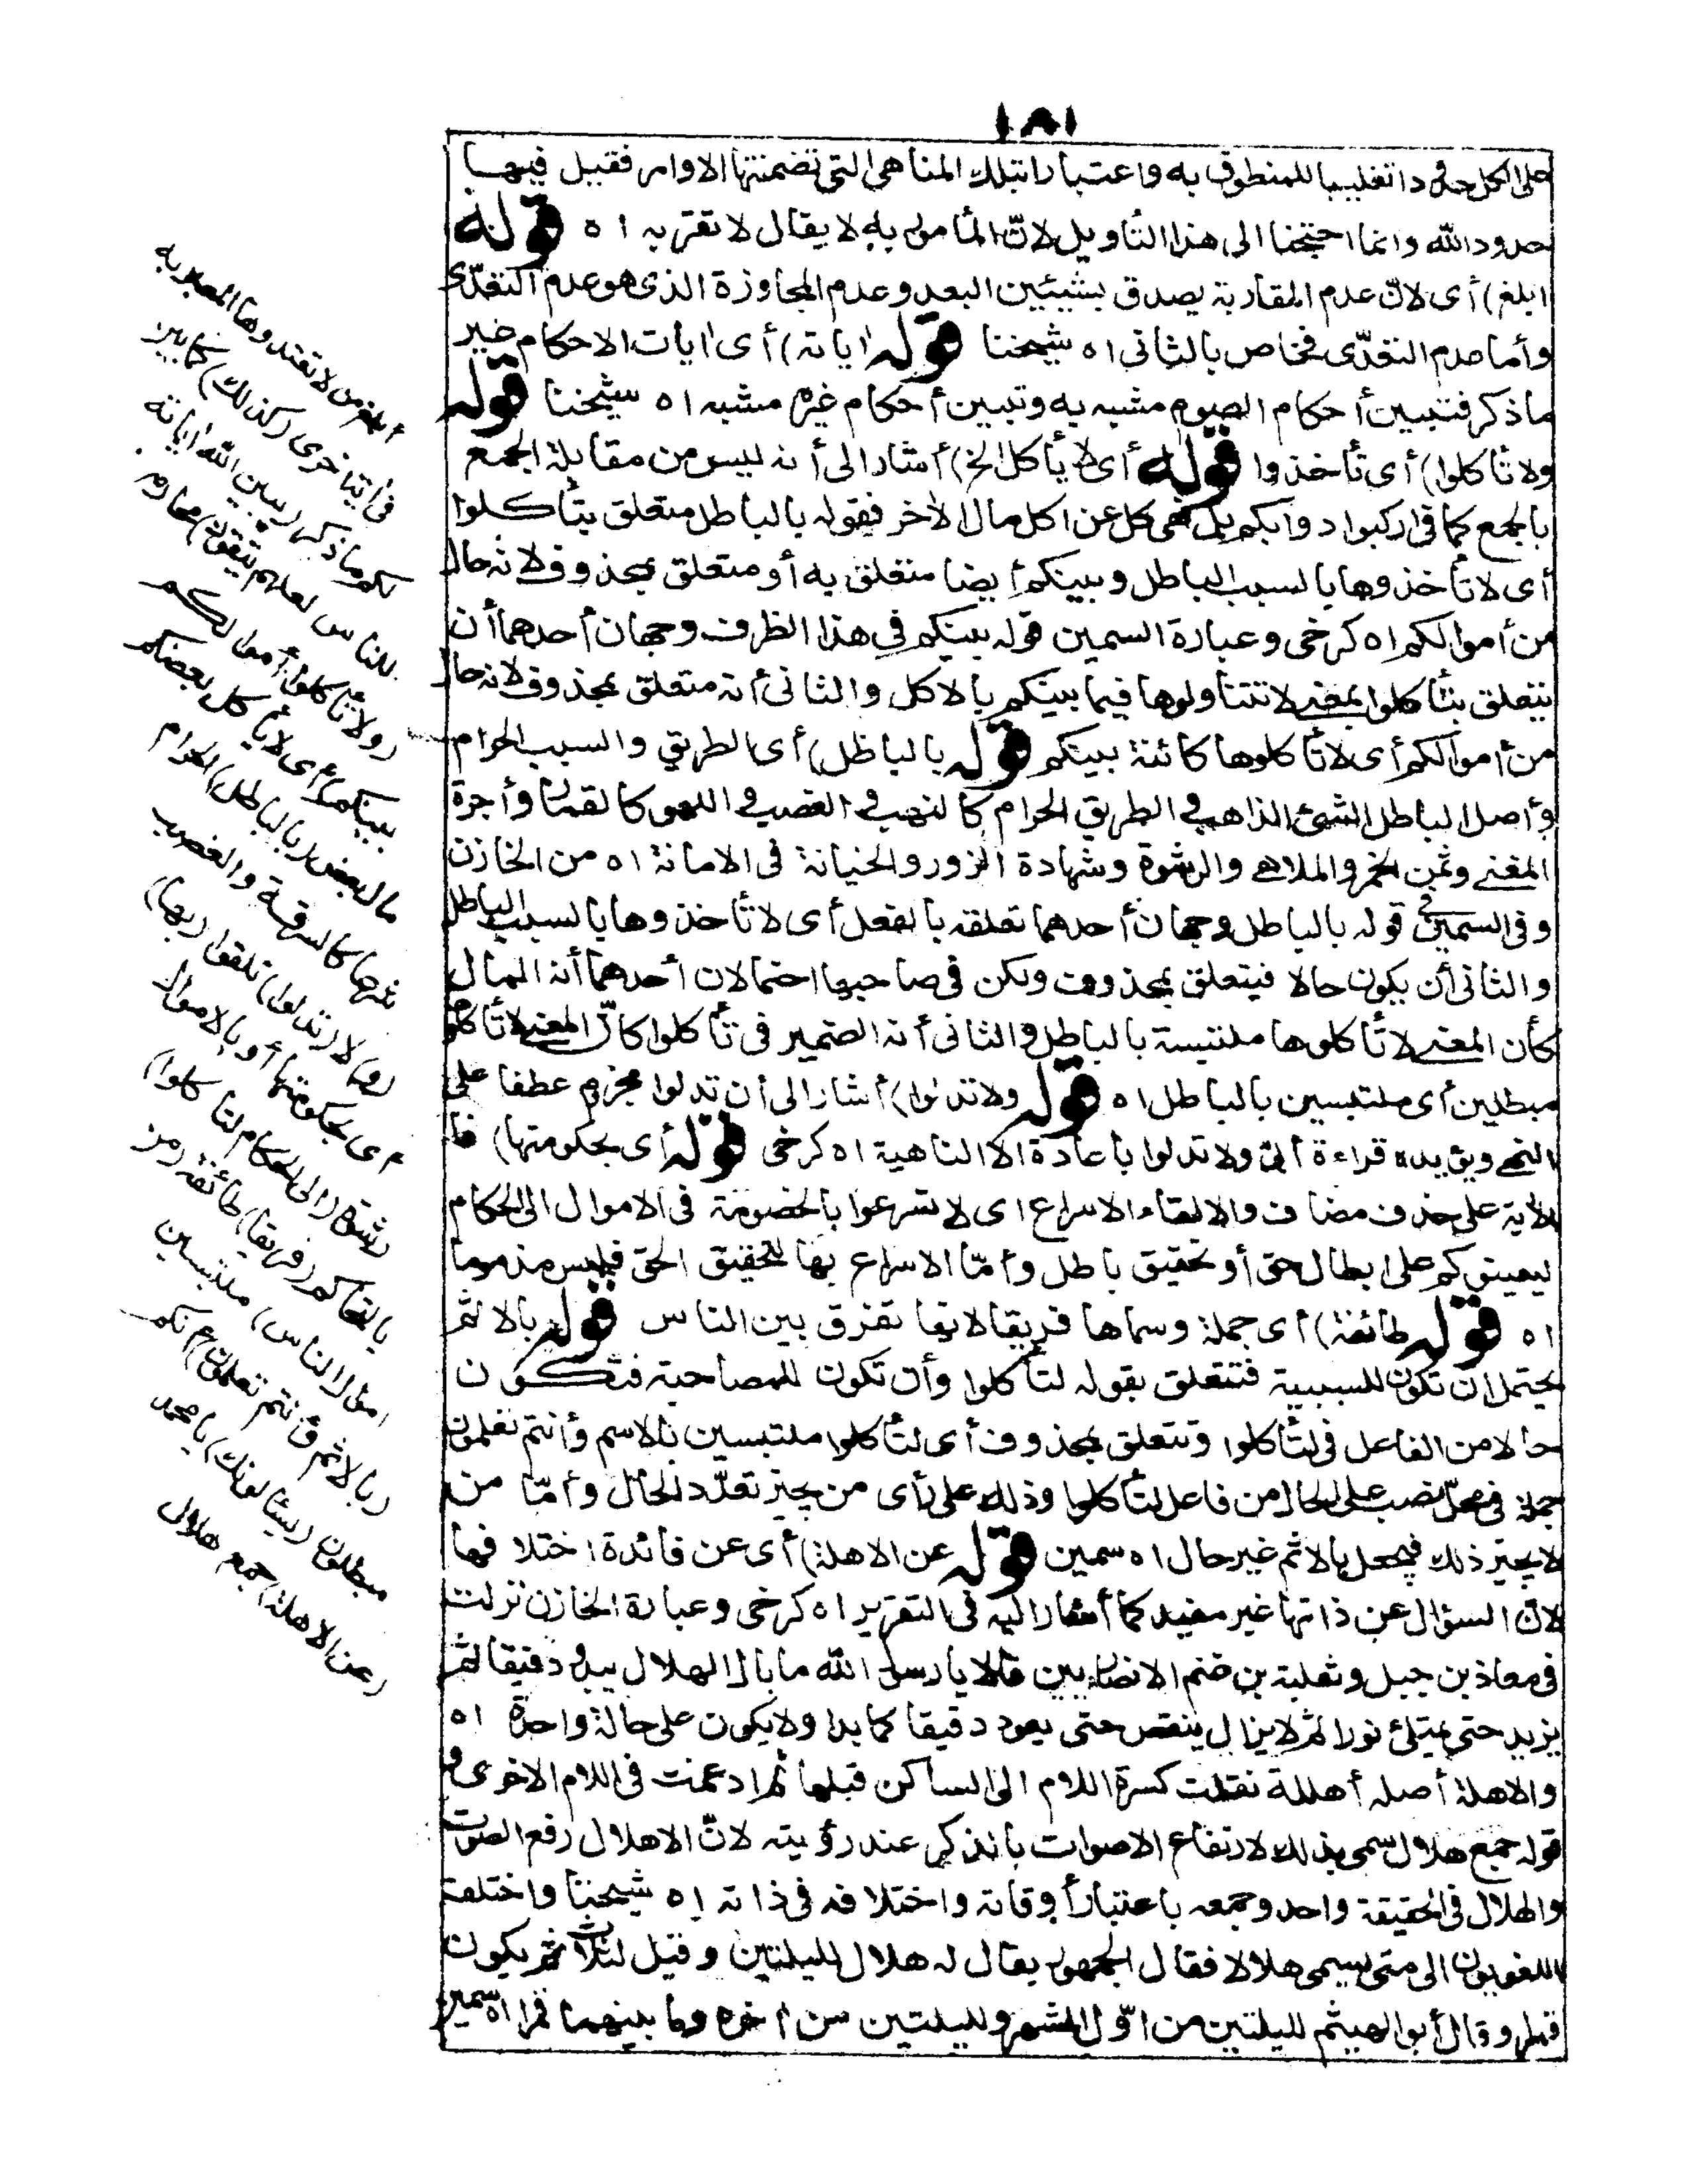 ١٨١
على الكل حدودا تغليبا للمنطوق به واعتبارا بتلك المناهى التى تضمنتها الاوامر فقيل فيها
حدود الله وانما احتجنا الى هذا التأويل لانّ المأمور به لا يقال لا تقربه ا ه قوله
ابلغ) أى لانّ عدم المقاربة يصدق بشيئين البعد وعدم المجاوزة الذى هو عدم التعدّى
وأما عدم التعدّى فخاص بالثانى ا ه شيخنا قوله اياته) أى ايات الاحكام غير
ما ذكر فتبيين أحكام الصوم مشبه به وتبيين أحكام غيره مشبه ا ه شيخنا قوله
ولا تأكلوا) أى تأخذوا قوله أى لا يأكل الخ) أشار الى أنه ليس من مقابلة الجمع
بالجمع كما فى اركبوا دوابكم بل نهى كل عن اكل مال الأخر فقوله بالباطل متعلق بتأكلوا
أى لا تأخذوها بالسبب الباطل وبينكم أيضا متعلق به أو متعلق بمحذوف لانه حال
من أموالكم ا ه كرخى وعبارة السمين قوله بينكم فى هذا الظرف وجهان أحدهما أن
يتعلق بتأكلوا بمعنى لا تتناولوها فيما بينكم بالاكل والثانى أنه متعلق بمحذوف لانه حال
من أموالكم أى لا تأكلوها كائنة بينكم قوله بالباطل) أى الطريق والسبب الحرام
وأصل الباطل الشئ الذاهب فى الطريق الحرام كالنهب فى الغصب فى اللهو كالقمار وأجرة
المغنى وثمن الخمر والملاهى والرشوة وشهادة الزور والخيانة فى الامانة ا ه من الخازن
وفى السمين فى قوله بالباطل وجهان أحدهما تعلقه بالفعل أى لا تأخذوها بالسبب الباطل
والثانى أن يكون حالا فيتعلق بمحذوف ولكن فى صاحبها احتمالان أحدهما أنه المال
كأن المعنى لا تأكلوها ملتبسة بالباطل والثانى أنه الضمير فى تأكلوا كانّ المعنى لا تأكلوها
مبطلين أى ملتبسين بالباطل ا ه قوله ولا تدلوا) أشار الى أن تدلوا مجزوم عطفا على
النهى ويؤيده قراءة أبىّ ولا تدلوا باعادة لا الناهية ا ه كرخى قوله أى بحكومتها) فا
لاية على حذف مضاف والالقاء الاسراع اى لا تسرعوا بالخصومة فى الاموال الى الحكام
ليعينوكم على ابطال حق أو تحقيق باطل وأمّا الاسراع بها لتحقيق الحق فليس مذموما
ا ه قوله طائفة) أى جملة وسماها فريقا لانها تفرق بين الناس قوله بالاثم
يحتمل ان تكون للسببية فتتعلق بقوله لتأكلوا وأن تكون للمصاحبة فتكون
حالا من الفاعل فى لتأكلوا وتتعلق بمحذوف أى لتأكلوا ملتبسين بالاسم وأنتم تعلمون
جملة فى محل نصب على الحال من فاعل لتأكلوا وذلك على رأى من يجيز تعدّد الحال وأمّا من
لا يجيز ذلك فيجعل بالاثم غير حال ا ه سمين قوله عن الاهلة) أى عن فائدة اختلافها
لانّ السؤال عن ذاتها غير مفيد كما أشار اليه فى التقرير ا ه كرخى وعبارة الخازن نزلت
فى معاذ بن جبل وثعلبة بن غنم الانصاريين قالا يا رسول الله ما بال الهلال يبدو دقيقا ثم
يزيد حتى يمتلئ نورا ثم لا يزال ينقص حتى يعود دقيقا كما بدا ولا يكون على حالة واحدة ا ه
والاهلة أصله أهللة نقلت كسرة اللام الى الساكن قبلها ثم ادغمت فى اللام الاخرى و
قوله جمع هلال سمى بذلك لارتفاع الاصوات بالذكر عند رؤيته لانّ الاهلال رفع الصوت
والهلال فى الحقيقة واحد وجمعه باعتبار أوقاته واختلافه فى ذاته ا ه شيخنا واختلف
اللغويون الى متى يسمى هلالا فقال الجمهور يقال له هلال لليلتين وقيل لثلاث ثم يكون
قمرا وقال أبو الهيثم لليلتين من اوّل الشهر ولليلتين من أخره وما بينهما قمرا ا ه سمين
أبلغ من لا تعتدوها المعبر به
فى أية أخرى (كذلك) كما بين
لكم ما ذكر (يبين الله اياته
للناس لعلهم يتقون) محارمه
(ولا تأكلوا أموالكم
بينكم) أى لا يأكل بعضكم
مال بعض (بالباطل) الحرام
شرعا كالسرقة والغصب
(و) لا (تدلوا) تلقوا (بها)
أى بحكومتها أو بالاموال
رشوة (الى الحكام لتأكلوا)
بالتحاكم (فريقا) طائفة (من
اموال الناس) ملتبسين
(بالاثم وأنتم تعلمون) أنكم
مبطلون (يسألونك) يا محمد
(عن الاهلة) جمع هلال